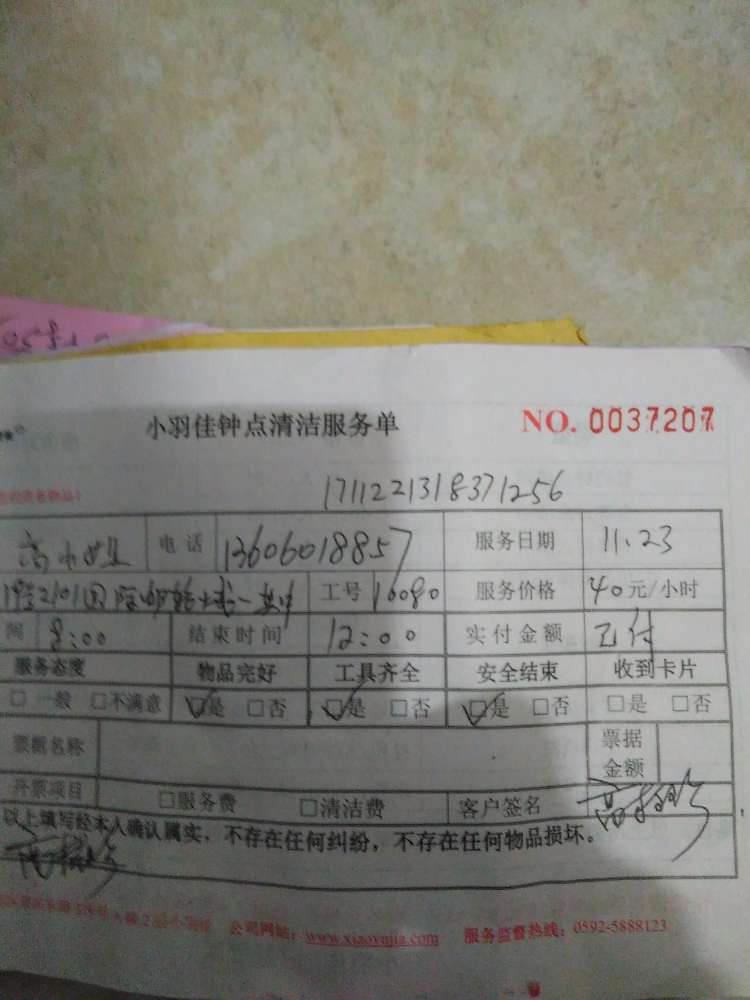 小羽佳钟点清洁服务单 NO. 0037207
1711221318371256
电话 13606018857 服务日期 11.23
工号 16080 服务价格 40元/小时
间 8:00 结束时间 12:00 实付金额 已付
服务态度 物品完好 工具齐全 安全结束 收到卡片
□一般 □不满意 □是 □否 □是 □否 □是 □否 □是 □否
票据名称 票据金额
开票项目 □服务费 □清洁费 客户签名
以上填写经本人确认属实，不存在任何纠纷，不存在任何物品损坏。
公司网站：www.xiaoyujia.com 服务监督热线：0592-5888123